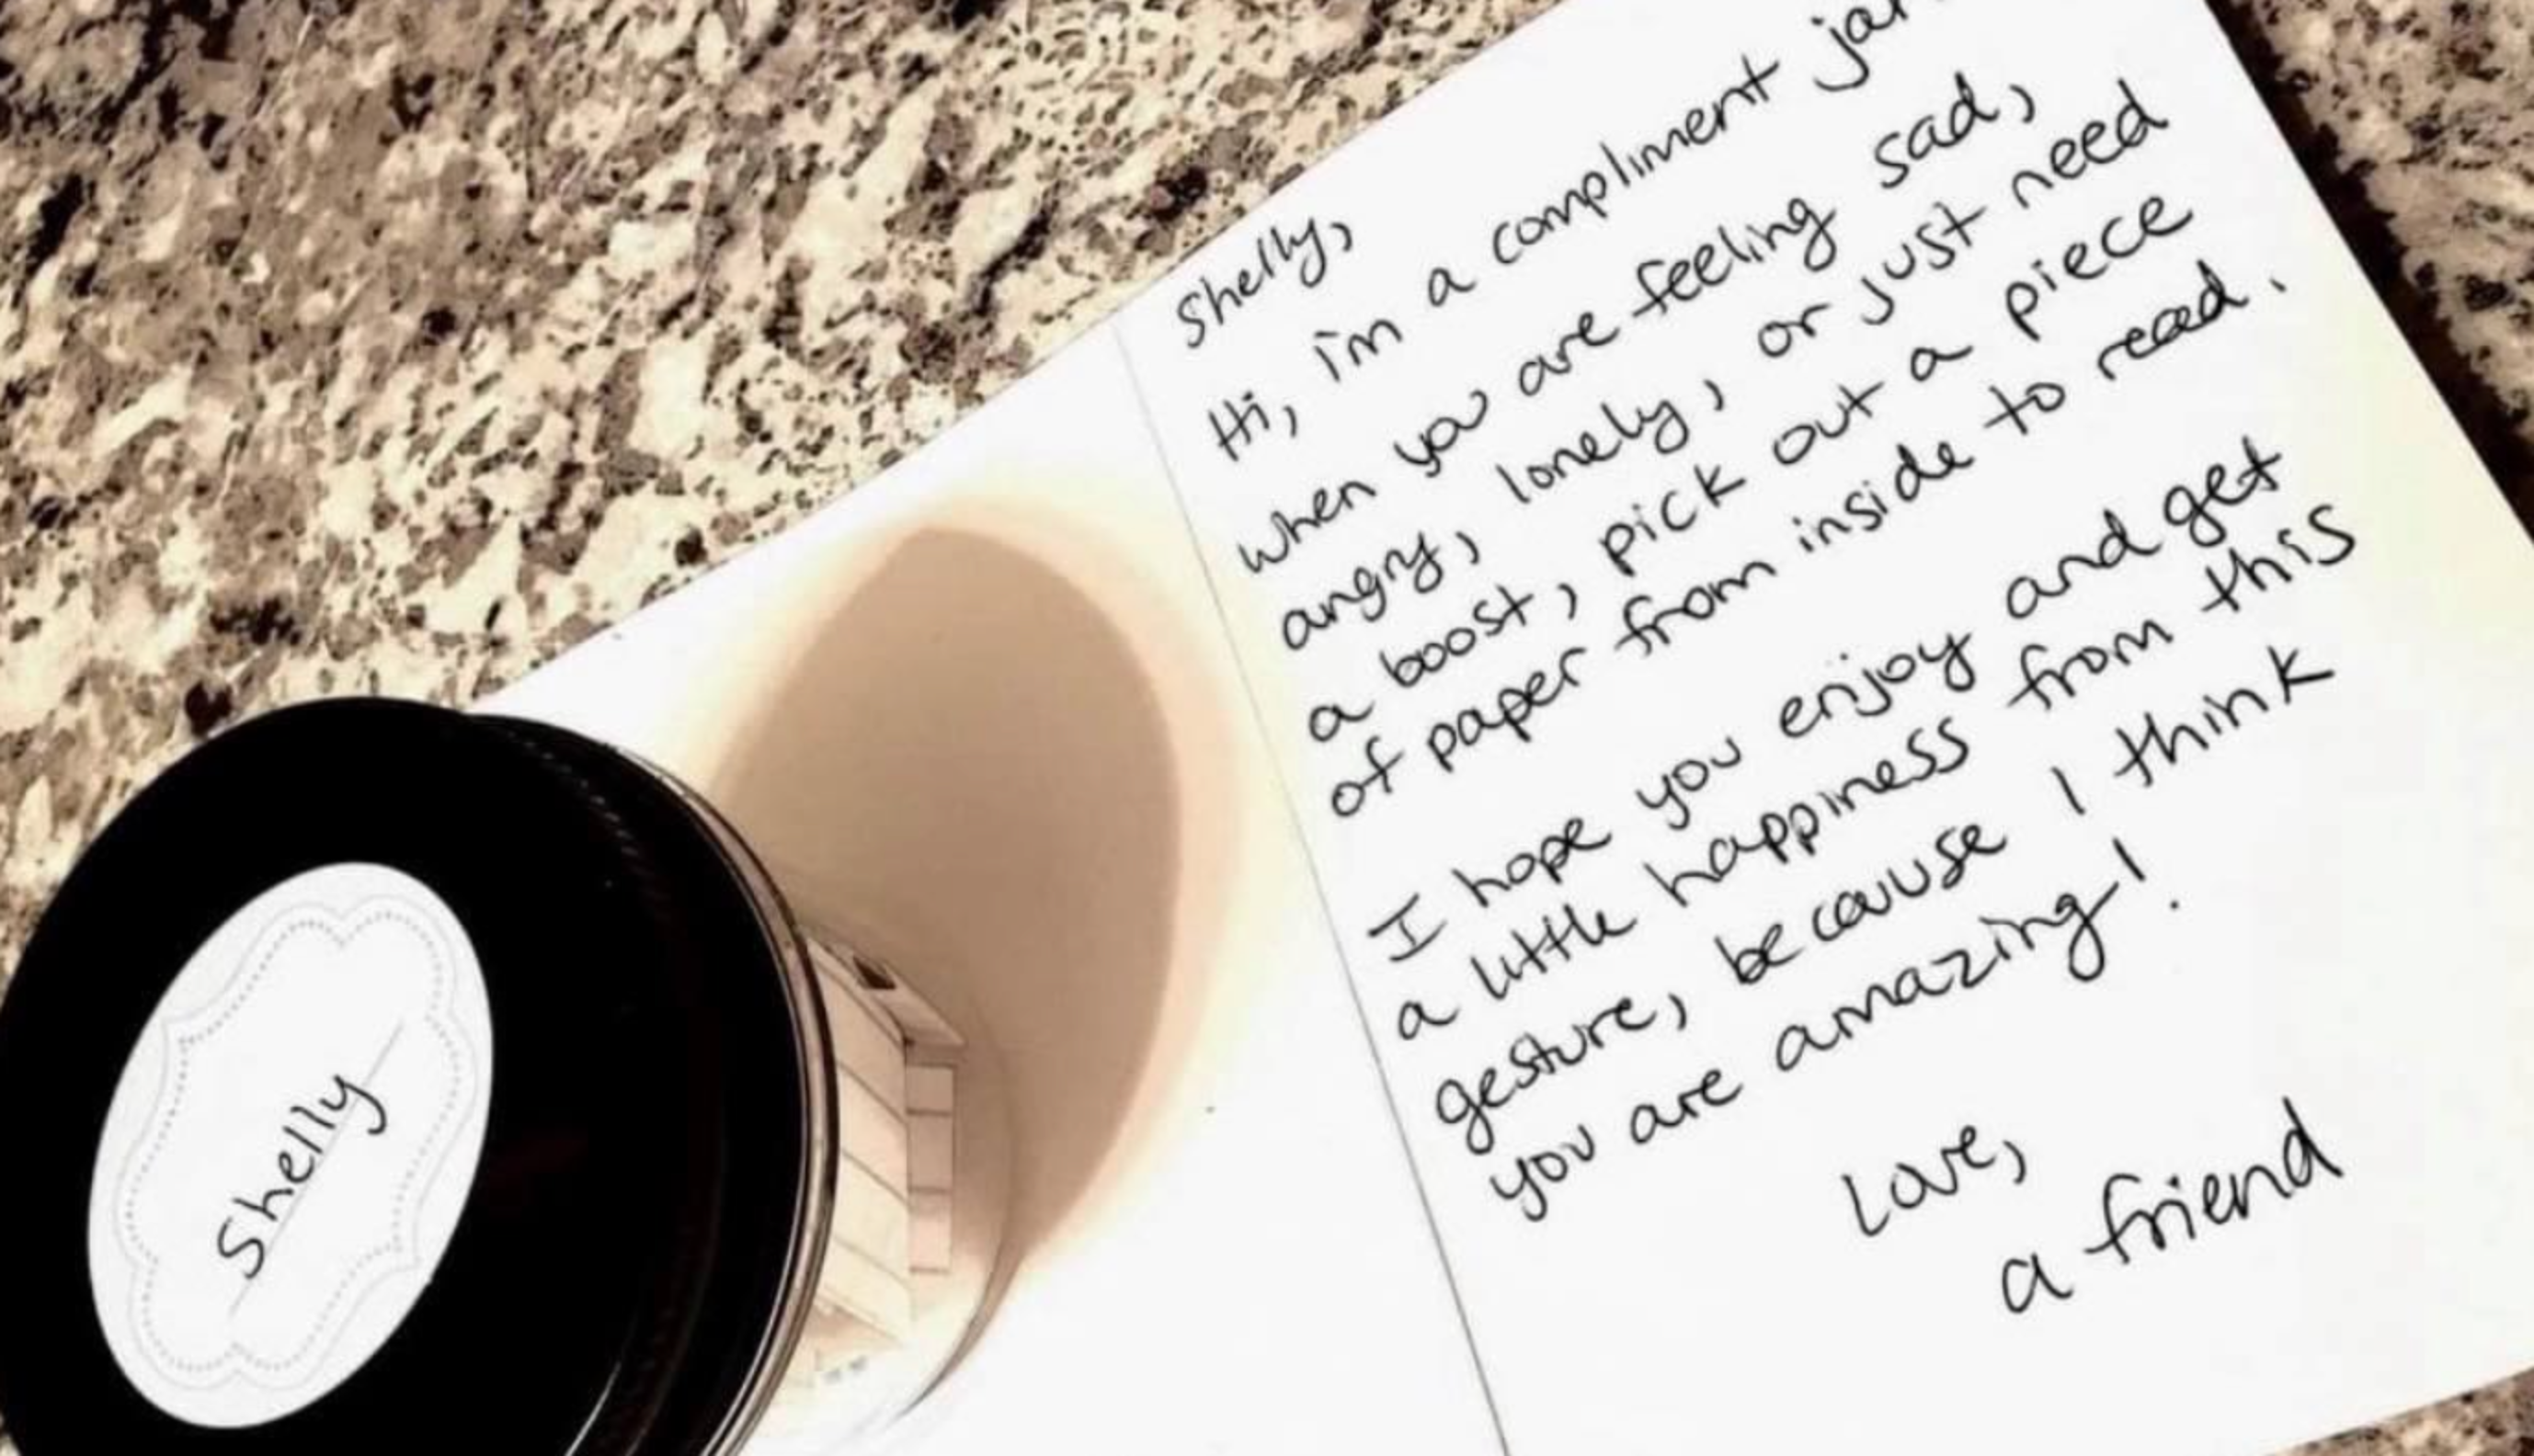 Shelly,
Hi, i'm a compliment jar.
When you are feeling sad,
angry, lonely, or just need
a boost, pick out a piece
of paper from inside to read.
I hope you enjoy and get
a little happiness from this
gesture, because I think
you are amazing!
Love,
a friend
Shelly